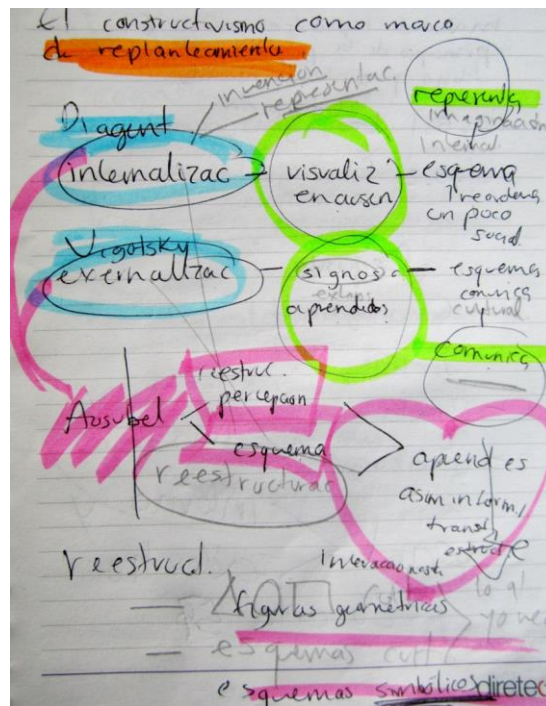 El constructivismo como marco
de replanteamiento.
invención
representac.
representa
imaginación
internal.
Piagent
internalizac — visualiz — esquema
en ausen
un poco
social
Vigotsky
externalizac — signos — esquema
aprendidos
comunica
cultural
comunica
Ausubel
reestruc.
percepcion
esquema
reestructurac
aprend es
asim inform,
transf,
reestruct.
figuras geométricas
esquemas cult
esquemas simbólicos
diretec